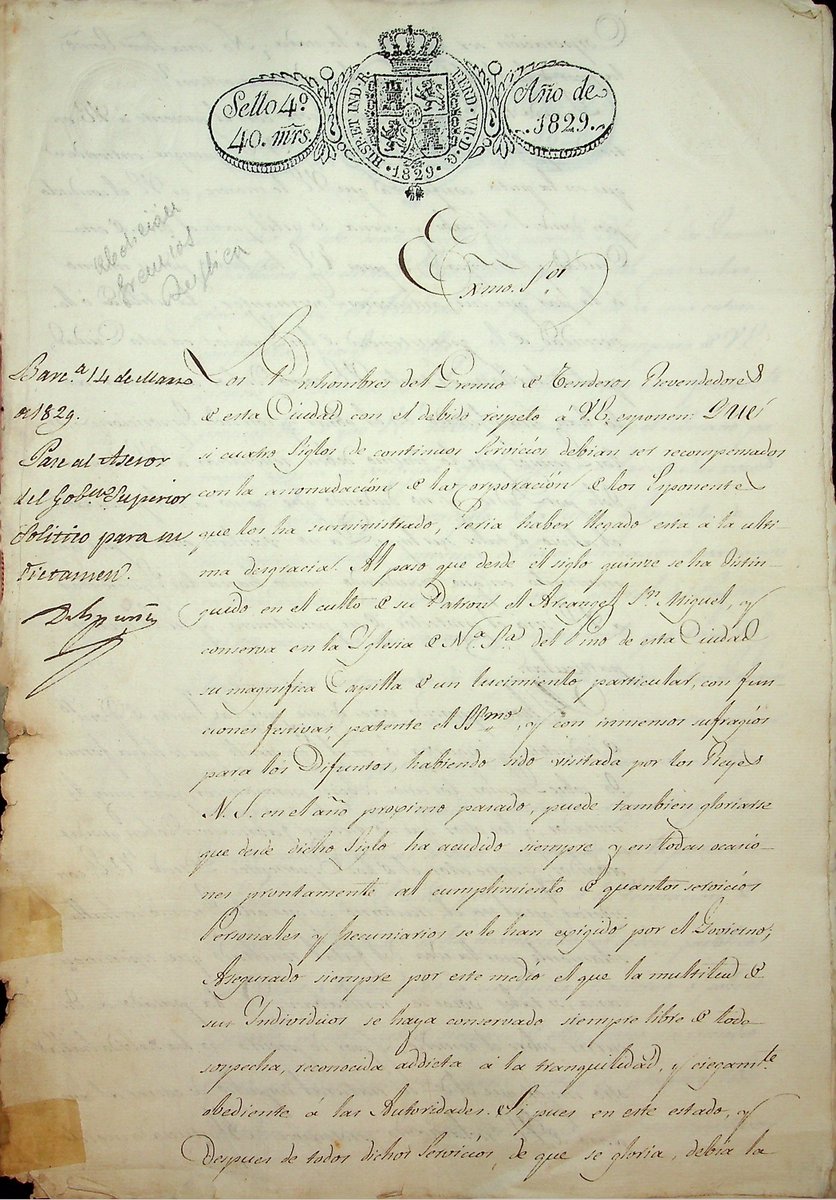 Sello 4º
40. mrs.
HISP. ET IND. R.
FERD. VII. D. G.
· 1829 ·
Año de
. 1829 .
abolicion
Gremios
Suplica
Exmo. Sor.
Barc.a 14 de Marzo
de 1829.
Pase al Asesor
del Gob.no Superior
Politico para su
dictamen.
Los Prohombres del Gremio de Tenderos Revendedores
de esta Ciudad con el debido respeto á V.E. exponen: Que
si cuatro siglos de continuos servicios debian ser recompensados
con la anonadación de la Corporación de los Exponentes
que los ha suministrado, seria haber llegado esta á la ulti-
ma desgracia. Al paso que desde el siglo quince se ha distin-
guido en el culto de su Patron el Arcangel Sn. Miguel, y
conserva en la Yglesia de Na. Sa. del Pino de esta Ciudad
su magnifica Capilla de un lucimiento particular, con fun-
ciones festivas, patente el SSmo, y con inmensos sufragios
para los Difuntos, habiendo sido visitada por los Reyes
N. S. en el año proximo pasado, puede tambien gloriarse
que desde dicho Siglo ha acudido siempre y en todas ocasio-
nes prontamente al cumplimiento de quantos servicios
Personales y Pecuniarios se le han exigido por el Govierno;
Asegurado siempre por este medio el que la multitud de
sus Individuos se haya conservado siempre libre de toda
sospecha, reconocida addicta á la tranquilidad, y ciegamte.
obediente á las Autoridades. Si pues en este estado, y
Despues de todos dichos Servicios, de que se gloria, debia la